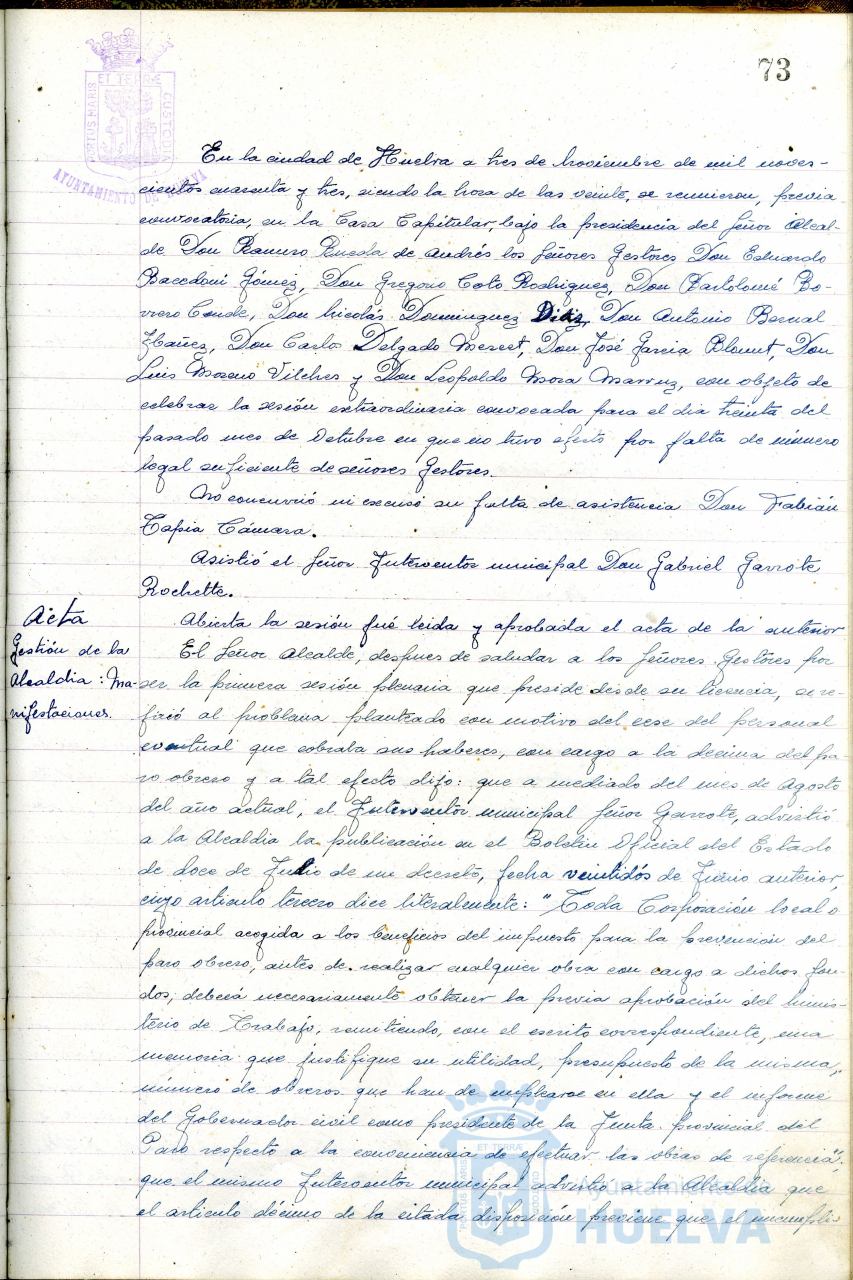 73
PORTUS MARIS ET TERRÆ CUSTODIA
AYUNTAMIENTO DE HUELVA
En la ciudad de Huelva a tres de Noviembre de mil noves-
cientos cuarenta y tres, siendo la hora de las veinte, se reunieron, previa
convocatoria, en la Casa Capitular, bajo la presidencia del Señor Alcal-
de Don Ramiro Rueda de Andrés los Señores Gestores Don Eduardo
Bacedoni Gómez, Don Gregorio Coto Rodriguez, Don Bartolomé Bo-
rrero Conde, Don Nicolás Dominguez Diaz, Don Antonio Bernal
Ibañez, Don Carlos Delgado Meseet, Don José Garcia Blount, Don
Luis Moreno Vilches y Don Leopoldo Mora Marruz, con objeto de
celebrar la sesión extraordinaria convocada para el dia treinta del
pasado mes de Octubre en que no tuvo efecto por falta de número
legal suficiente de señores Gestores.
No concurrió ni excusó su falta de asistencia Don Fabián
Tapia Cámara.
Asistió el Señor Interventor municipal Don Gabriel Garrote
Rochette.
Acta
Abierta la sesión fué leida y aprobada el acta de la anterior
Gestión de la
Alcaldia: Ma-
nifestaciones.
El Señor Alcalde, despues de saludar a los Señores Gestores por
ser la primera sesión plenaria que preside desde su licencia, se re-
firió al problema planteado con motivo del cese del personal
eventual que cobraba sus haberes, con cargo a la decima del pa-
ro obrero y a tal efecto dijo: que a mediado del mes de Agosto
del año actual, el Interventor municipal Señor Garrote, advirtió
a la Alcaldia la publicación en el Boletin Oficial del Estado
de doce de Julio de un decreto, fecha veintidós de Junio anterior,
cuyo articulo tercero dice literalmente: "Toda Corporación local o
provincial acogida a los beneficios del impuesto para la prevención del
paro obrero, antes de realizar cualquier obra con cargo a dichos fon-
dos, deberá necesariamente obtener la previa aprobación del Minis-
terio de Trabajo, remitiendo, con el escrito correspondiente, una
memoria que justifique su utilidad, presupuesto de la misma,
número de obreros que han de emplearse en ella y el informe
del Gobernador civil como presidente de la Junta provincial del
Paro respecto a la conveniencia de efectuar las obras de referencia";
que el mismo Interventor municipal advirtió a la Alcaldia que
el articulo décimo de la citada disposición previene que el incumpli-
Ayuntamiento
HUELVA